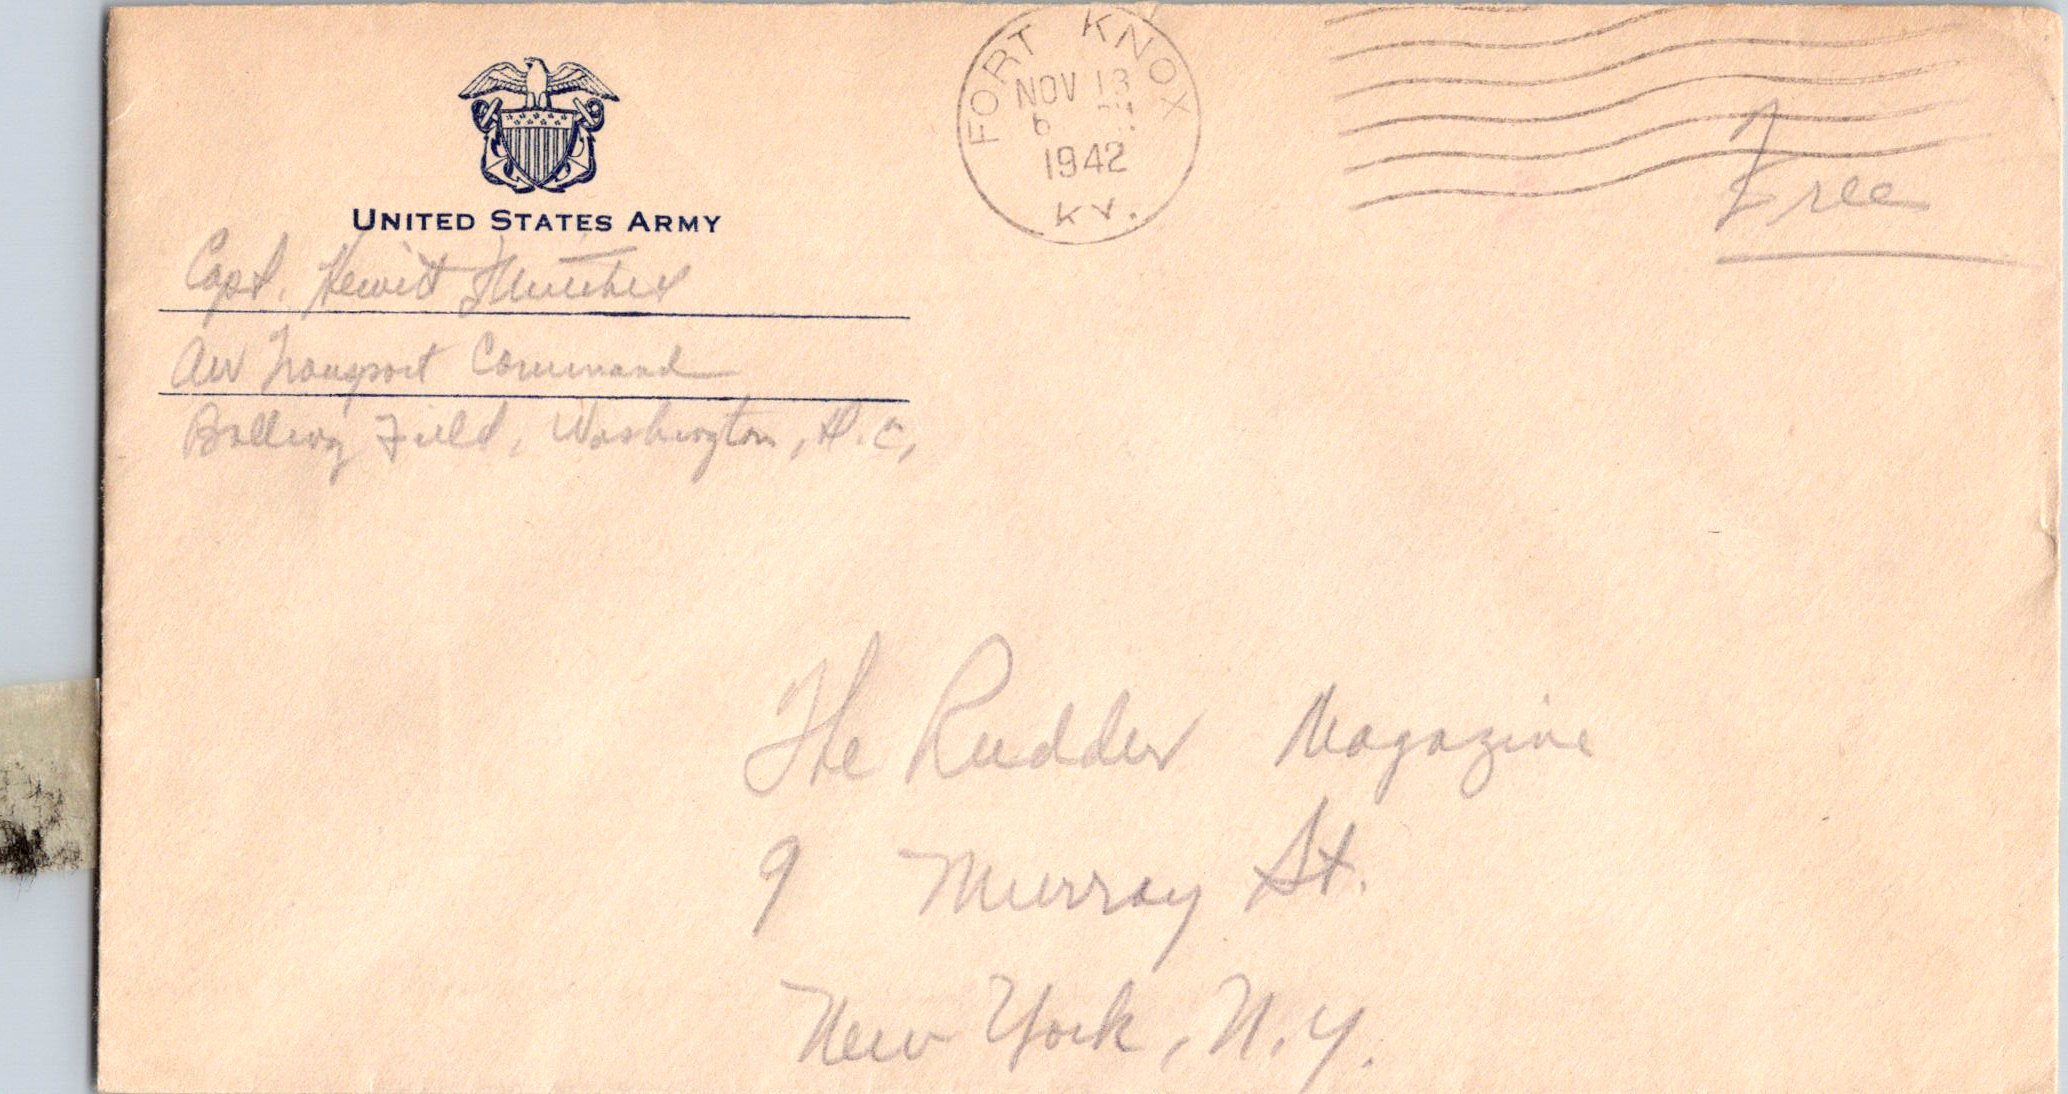 UNITED STATES ARMY
Capt. Hewitt
Air Transport Command
Bolling Field, Washington, D.C.
FORT KNOX
NOV 13
6
1942
KY.
Free
The Rudder Magazine
9 Murray St.
New York, N.Y.